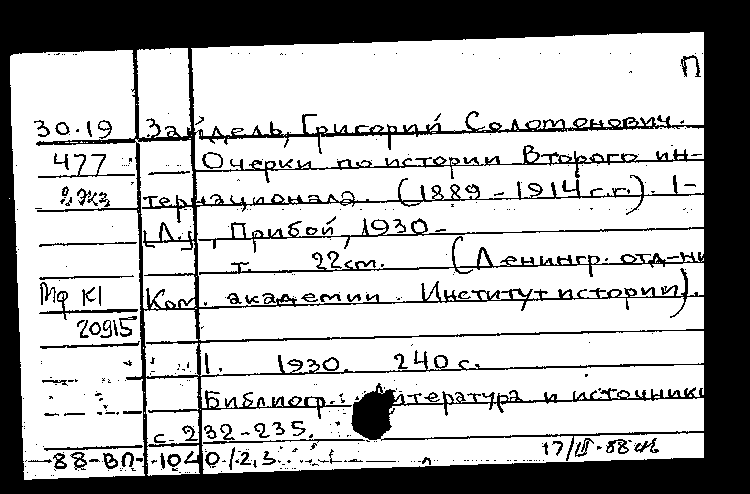 П
30.19 Зайдель, Григорий Соломонович.
477 Очерки по истории Второго ин-
2 экз тернационала. (1889-1914 г.г.). 1-
[Л.], Прибой, 1930-
т. 22 см. (Ленингр. отд-ни
Мф К1 Ком. академии. Институт истории).
20915
1. 1930. 240 с.
Библиогр.: "Литература и источники
с. 232-235.
88-ВП-1040/2,3 17/III-88